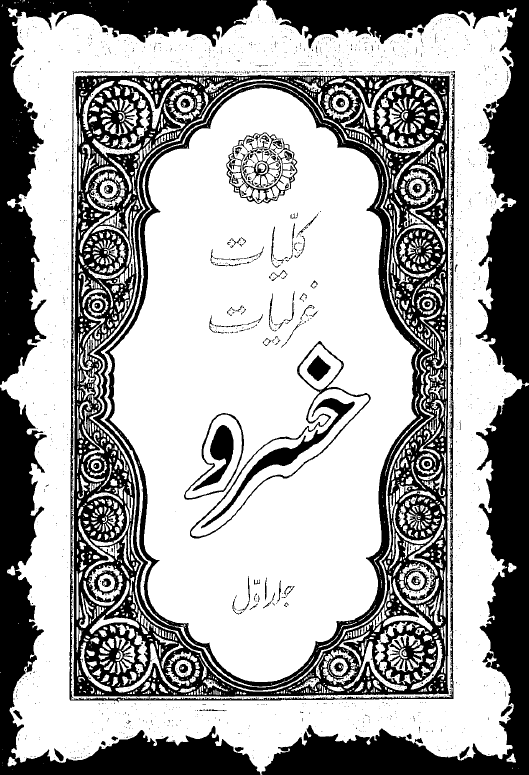 کلّیات
غزلیات
خسرو
جلد اوّل